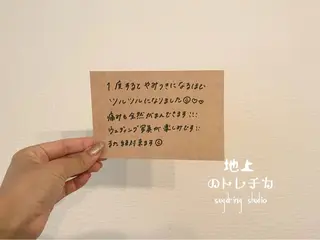 1度するとやみつきになるほど
ツルツルになりました☺♡♡
痛みも全然がまんできます!!!
ウェディング写真が楽しみです!!
またお対来ます☺
地上
のトレチカ
sugaring studio